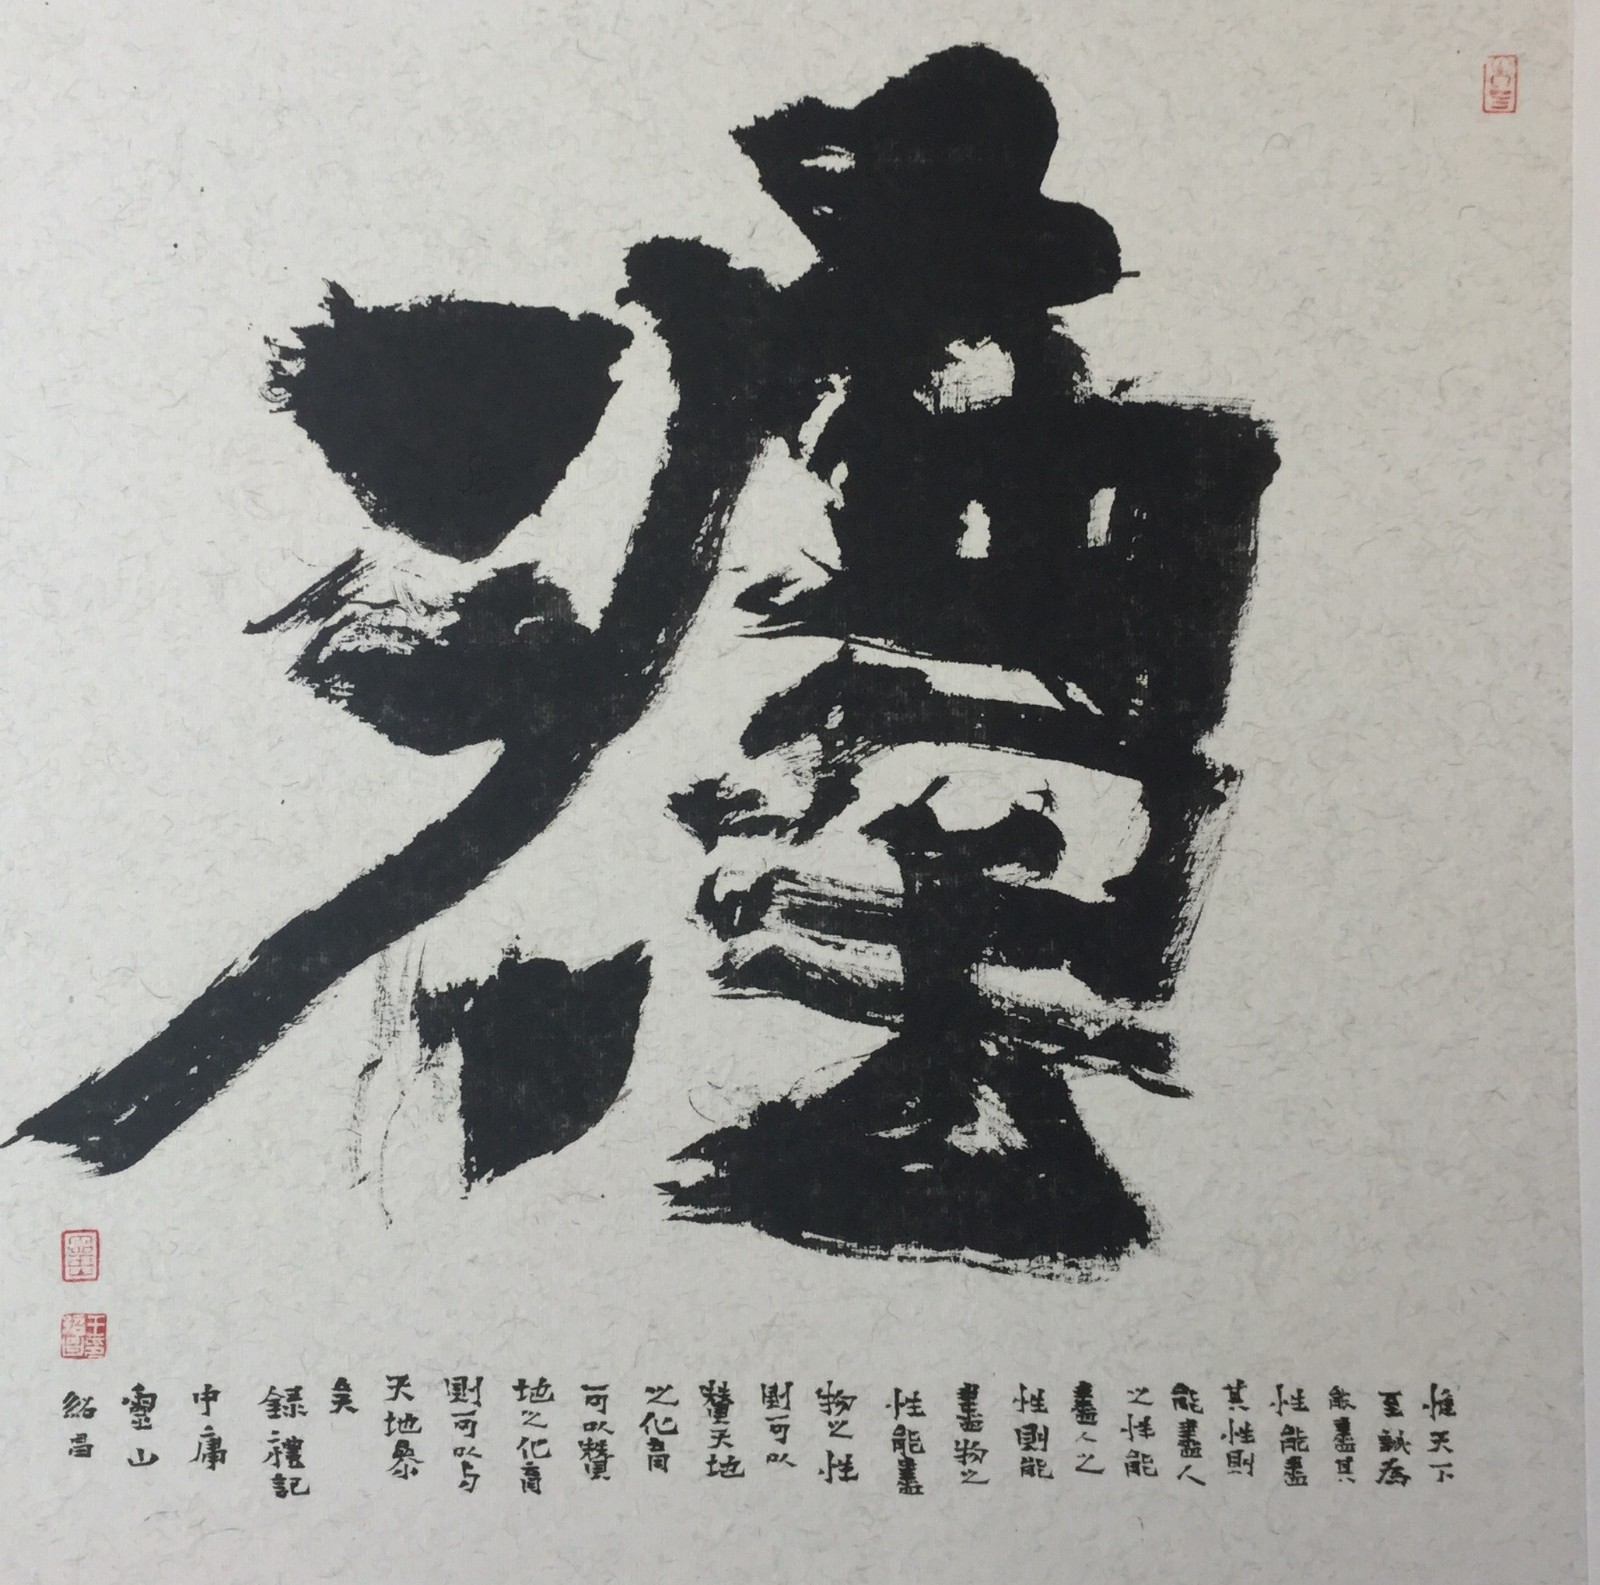 禮
惟天下
至誠為
能盡其
性能盡
其性則
能盡人
之性能
盡人之
性則能
盡物之
性能盡
物之性
則可以
贊天地
之化育
可以贊
地之化育
則可以与
天地參
矣
錄禮記
中庸
靈山
紹昌